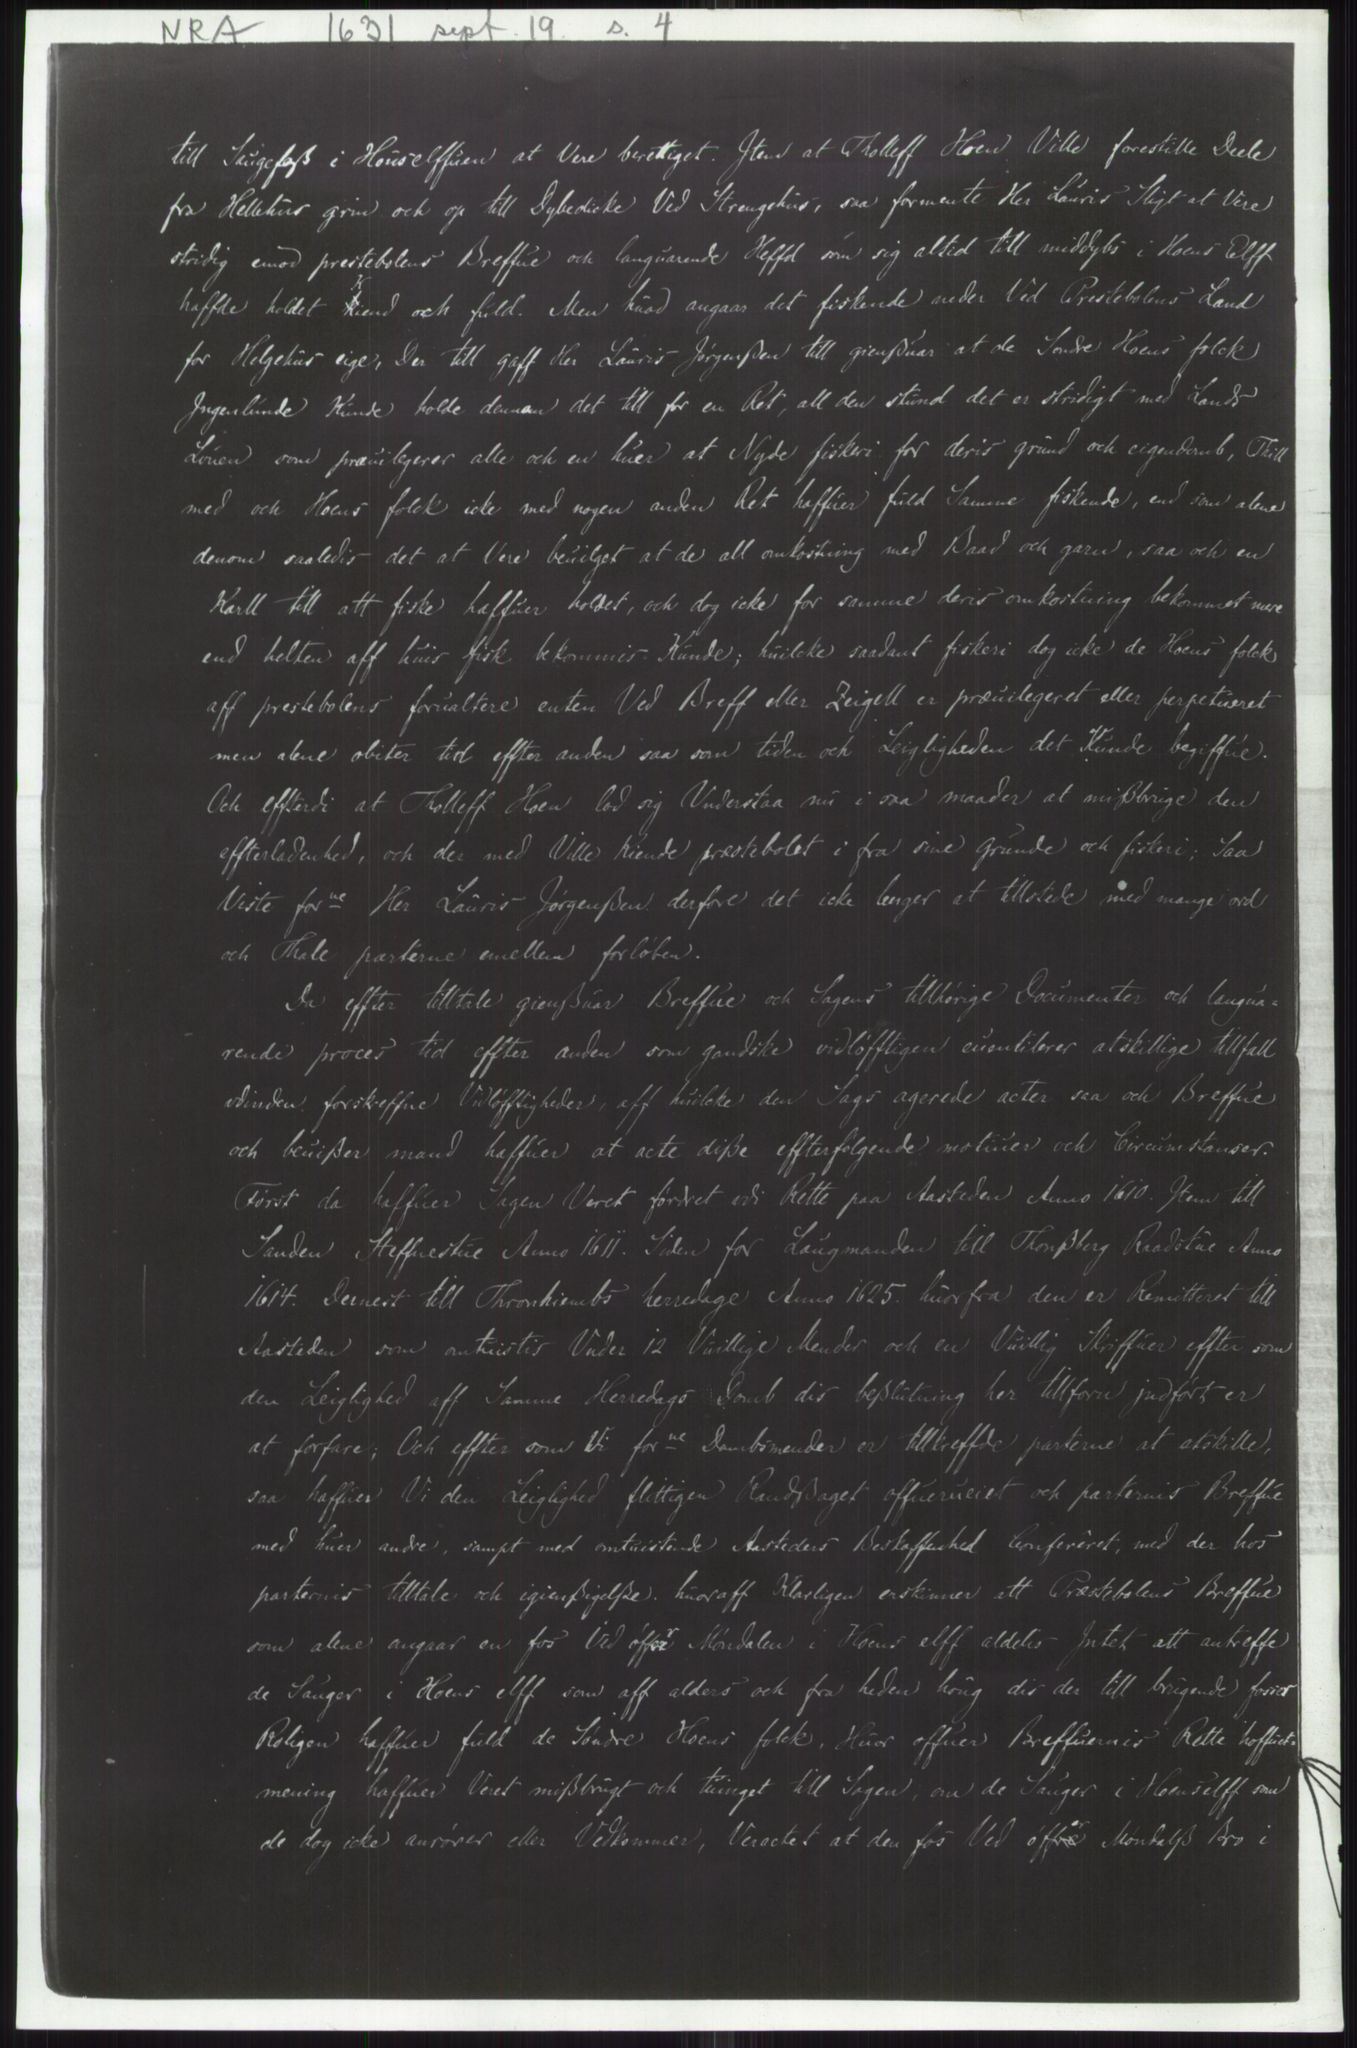 NRA 1631 sept. 19. s. 4
till Saugefoß i Houselffuen at Vere berettiget. Jtem at Tholleff Hoen Ville forestille Deele
fra Hellehus grim och op till Dybedicke Ved Strengehus, saa formente Her Lauris Sligt at Vere
stridig emod prestebolens Breffue och languarende Heffd som sig altid till middybs i Hoens Elff
haffde holdet Kiend och fuld. Men huad angaar det fiskende neder Ved Prestebolens Land
for Helgehus eige, Der till gaff Her Lauris Jørgenßen till gienßuar at de Søndre Hoens folck
Jngenlunde Kunde holde dennem det till for en Ret, all den stund det er stridigt med Lands
Louen som preuilegerer alle och en huer at Nyde fiskeri for deris grund och eigendomb, Thill
med och Hoens folck icke med nogen anden Ret haffuer fuld Samme fiskende, end som alene
denom saaledis det at Vere beuilget at de all omkostning med Baad och garn, saa och en
Karll till att fiske haffuer holdet, och dog icke for samme deris omkostning bekommet mere
end helten aff huis fisk bekommis Kunde; huilcke saadant fiskeri dog icke de Hoens folck
aff prestebolens forualtere enten Ved Breff eller Zeigell er præuilegeret eller perpetueret
men alene obiter tid effter anden saa som tiden och Leigligheden det Kunde begiffue.
Och effterdi at Tholleff Hoen lod sig Understaa nu i saa maader at mißbruge den
effterladenhed, och der med Ville kiende præstebolet i fra sine grunde och fiskeri; Saa
Viste forne Her Lauris Jørgenßen derfore det icke lenger at tillstede med mange ord
och Thale parterne emellem forløben.
Da effter tilltale gienßuar Breffue och Sagens tillhørige Documenter och langua-
rende proces tid effter anden som gandske vidløfftigen euentilerer atskillige tillfall
vdinden forskreffne Vidløfftigheder, aff huilcke den Sags agerede acter saa och Breffue
och beuißer mand haffuer at acte diße effterfølgende motiuer och Circumstanser.
Først da haffuer Sagen Veret førdret vdi Rette paa Aasteden Anno 1610. Jtem till
Sanden Steffnestue Anno 1611. Siden for Laugmanden till Thonßberg Raadstue Anno
1614. Dernest till Thronhiembs herredage Anno 1625. huorfra den er Remitteret till
Aasteden som omtuistis Under 12 Vuillige Mender och en Vuillig Skriffuer effter som
den Leiglighed aff Samme Herredags Domb dis beßlutning her tillforn jndført er
at forfare; Och effter som Vi forne Dombsmender er tilltreffde parterne at atskille,
saa haffuer Vi den Leiglighed flittigen Randßaget offuerueiet och parternis Breffue
med huer andre, sampt med omtuistende Aasteders Beskaffenhed Confereret, med der hos
parternis tilltale och igienßigelße. huoraff Klarligen erskinner att Præstebolens Breffue
som alene angaar en fos Ved øffer Møndalen i Hoens elff aldelis Jntet att antreffe
de Sauger i Hoens elff som aff alders och fra heden houg dis der till brugende foser
Roligen haffuer fuld de Søndre Hoens folck. Huor offuer Breffuernis Rette hoffuet-
mening haffuer Veret mißbrugt och tuinget till Sagen, om de Sauger i Hoenselff som
de dog icke anrører eller Vedkommer, Veractet at den fos Ved øffer Møndalß Bro i